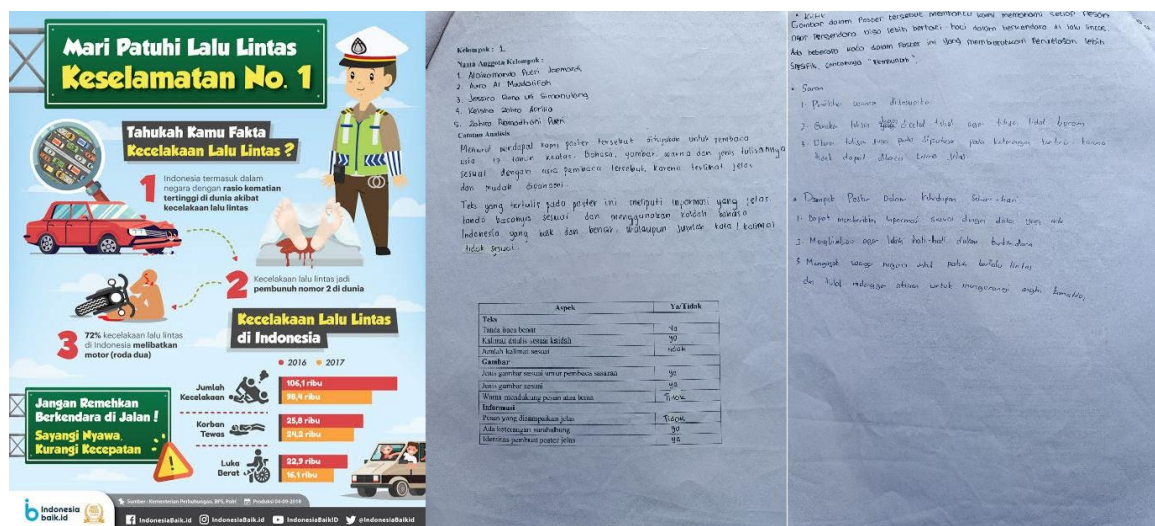 Mari Patuhi Lalu Lintas
Keselamatan No. 1
Tahukah Kamu Fakta
Kecelakaan Lalu Lintas ?
1
Indonesia termasuk dalam
negara dengan rasio kematian
tertinggi di dunia akibat
kecelakaan lalu lintas
2
Kecelakaan lalu lintas jadi
pembunuh nomor 2 di dunia
3
72% kecelakaan lalu lintas
di Indonesia melibatkan
motor (roda dua)
Kecelakaan Lalu Lintas
di Indonesia
2016 2017
Jumlah
Kecelakaan
106,1 ribu
98,4 ribu
Korban
Tewas
25,8 ribu
24,2 ribu
Luka
Berat
22,9 ribu
16,1 ribu
Jangan Remehkan
Berkendara di Jalan !
Sayangi Nyawa,
Kurangi Kecepatan
Indonesia
baik.id
Sumber : Kementerian Perhubungan, BPS, Polri Produksi 04-09-2018
IndonesiaBaik.id IndonesiaBaik.id IndonesiaBaikID @IndonesiaBaikId
Kelompok : 1.
Nama Anggota Kelompok :
1. Putri
2. Aura Al
3. Jessica
4. Zahra Afrika
5. Zahra Ramadhani Putri
Catatan Analisis
Menurut pendapat kami poster tersebut ditujukan untuk pembaca
usia 17 tahun keatas. Bahasa, gambar, warna dan jenis tulisannya
sesuai dengan usia pembaca tersebut, karena terlihat jelas
dan mudah dipahami.
Teks yang tertulis pada poster ini meliputi informasi yang jelas
tanda bacanya sesuai dan menggunakan kaidah bahasa
Indonesia yang baik dan benar, walaupun jumlah kata / kalimat
tidak sesuai.
Aspek Ya/Tidak
Teks
Tanda baca benar Ya
Kalimat ditulis sesuai kaidah ya
Jumlah kalimat sesuai tidak
Gambar
Jenis gambar sesuai umur pembaca sasaran ya
Jenis gambar sesuai ya
Warna mendukung pesan atau benar Tidak
Informasi
Pesan yang disampaikan jelas Tidak
Ada keterangan narahubung ya
Identitas pembuat poster jelas ya
Gambar dalam poster tersebut membantu kami memahami setiap pesan
agar pengendara bisa lebih berhati-hati dalam berkendara di lalu lintas.
Ada beberapa kata dalam poster ini yang membutuhkan penjelasan lebih
spesifik, contohnya "Pembunuh".
• Saran
1. Pemilihan warna
2. Gunakan tulisan dicetak tebal agar tulisan tidak buram
tulisan pada keterangan karena
tidak dapat dibaca jelas
Dampak Poster Dalam Kehidupan Sehari-hari
1. Dapat memberikan informasi sesuai dengan data yang ada
2. agar lebih hati-hati dalam berkendara
3. Mengajak warga negara untuk patuh berlalu lintas
dan tidak melanggar aturan untuk mengurangi angka kematian.